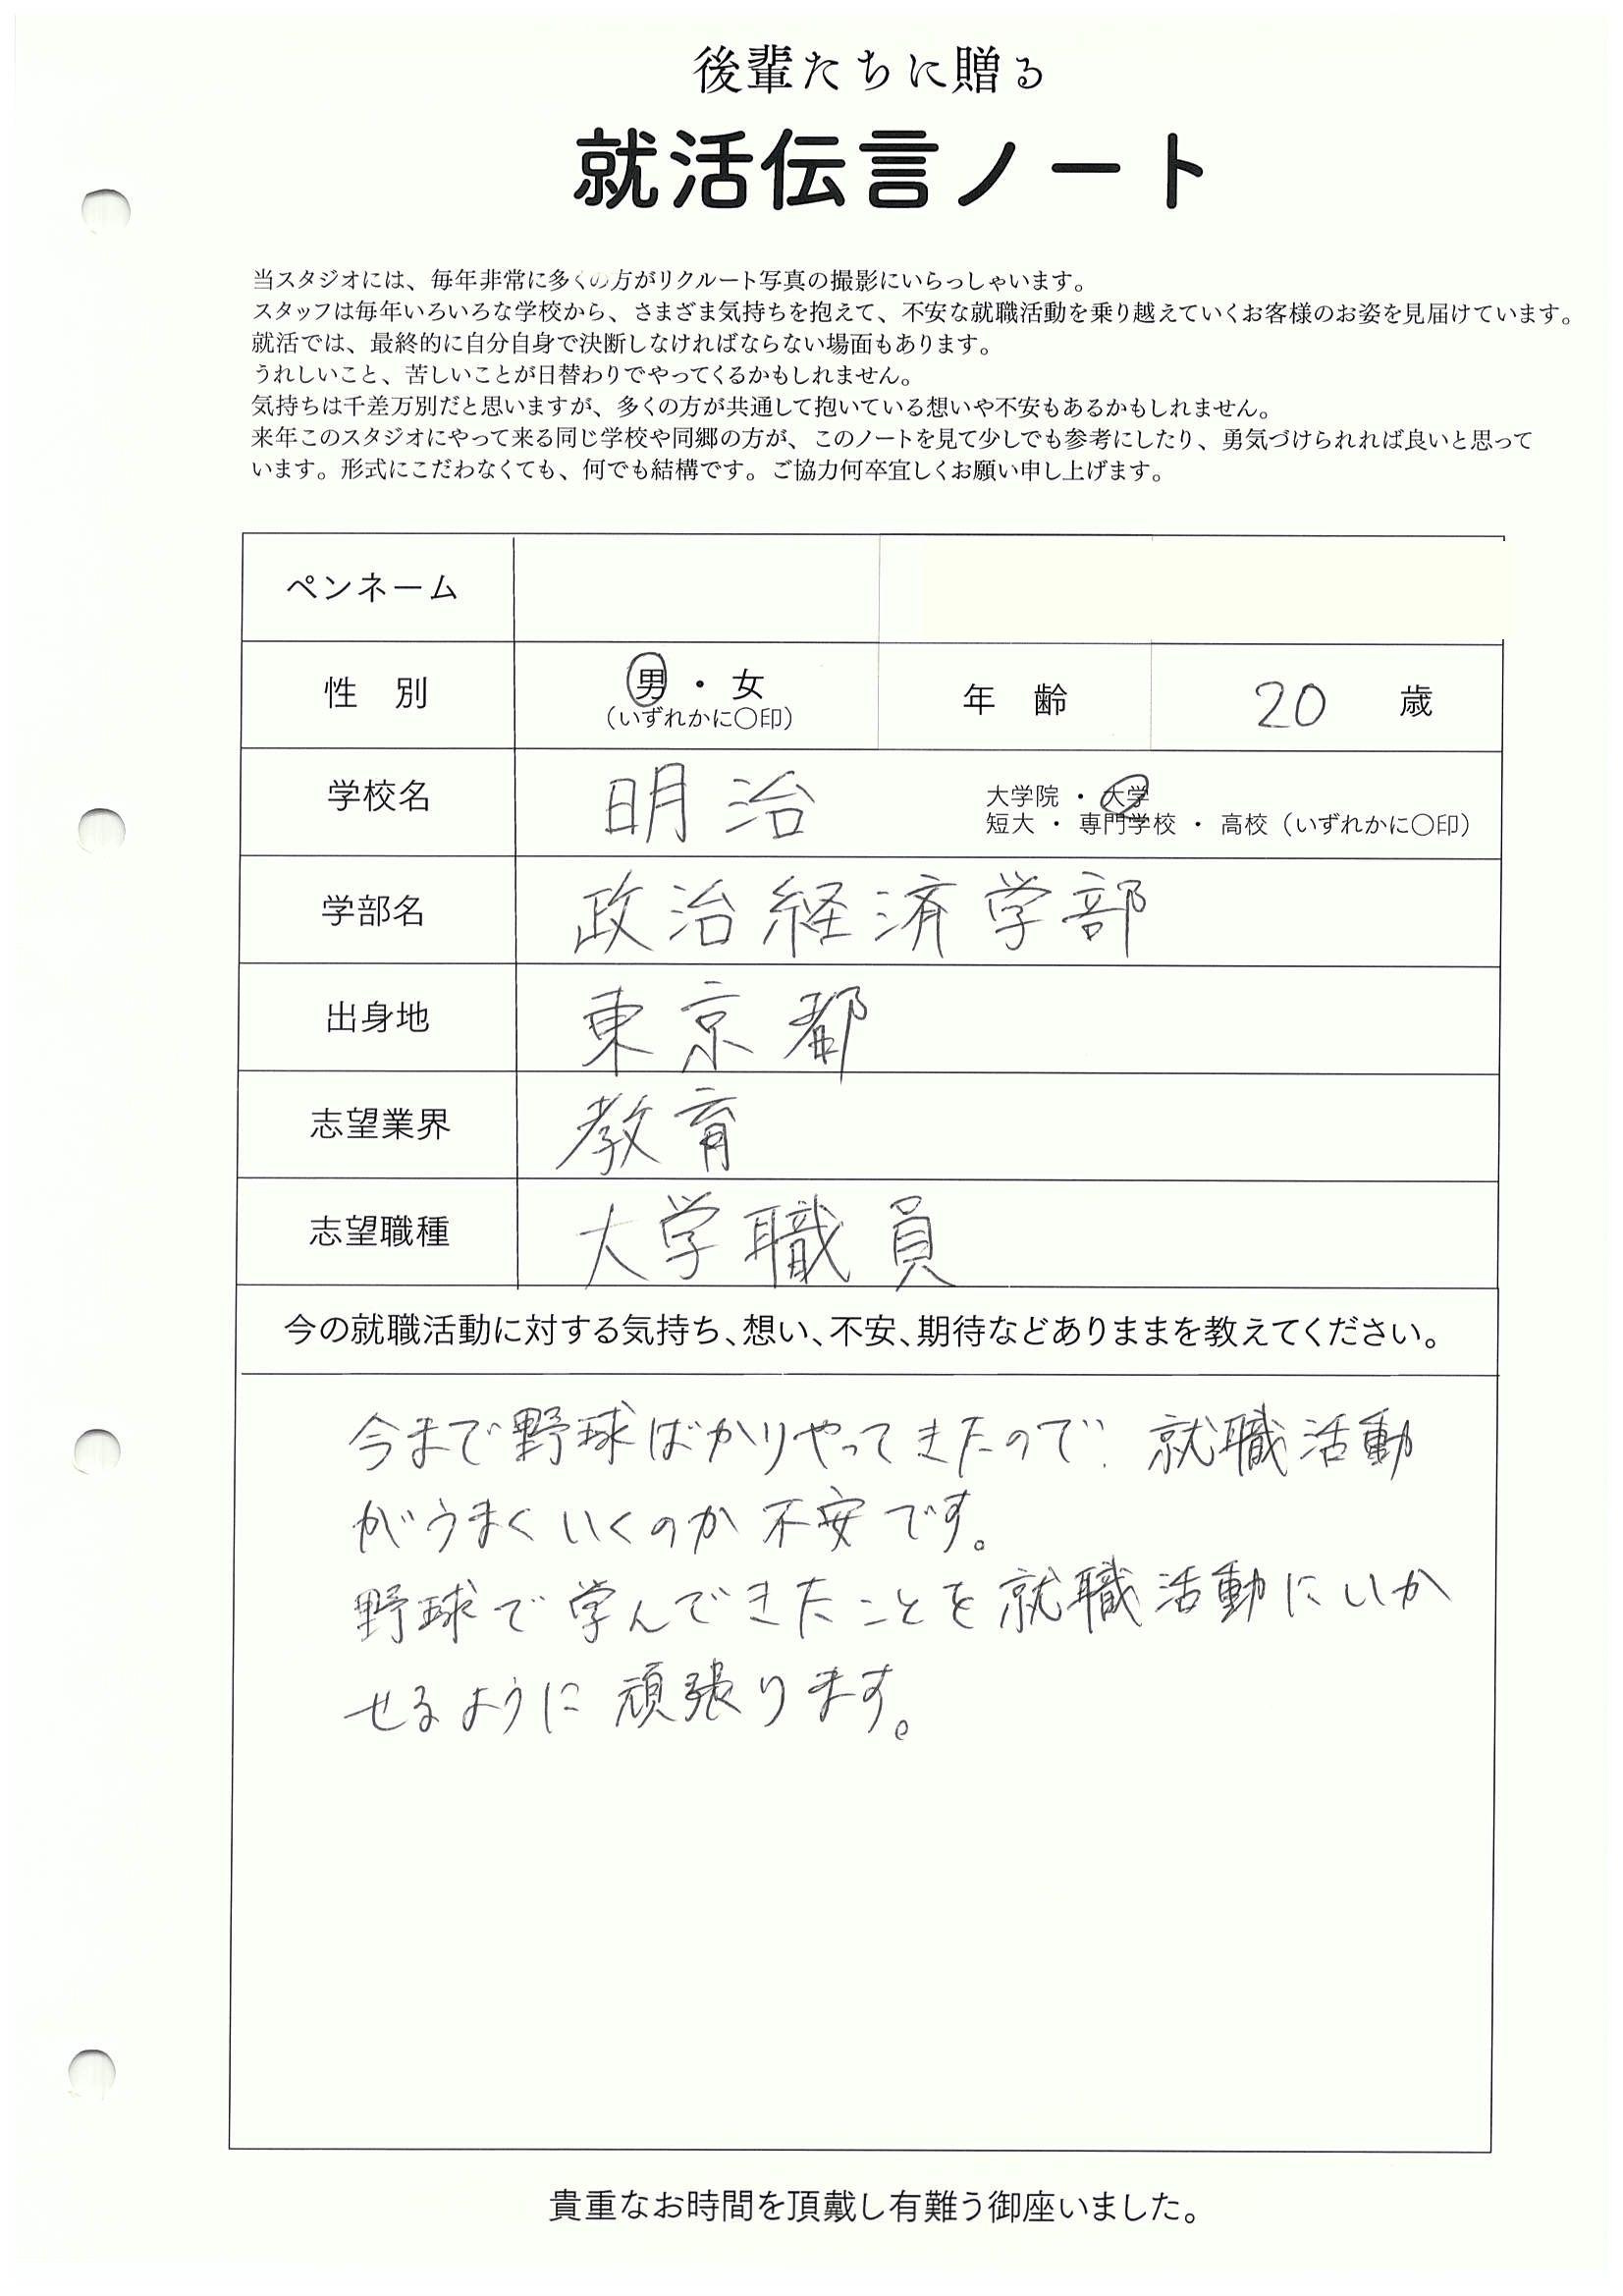 後輩たちに贈る
就活伝言ノート
当スタジオには、毎年非常に多くの方がリクルート写真の撮影にいらっしゃいます。
スタッフは毎年いろいろな学校から、さまざま気持ちを抱えて、不安な就職活動を乗り越えていくお客様のお姿を見届けています。
就活では、最終的に自分自身で決断しなければならない場面もあります。
うれしいこと、苦しいことが日替わりでやってくるかもしれません。
気持ちは千差万別だと思いますが、多くの方が共通して抱いている想いや不安もあるかもしれません。
来年このスタジオにやって来る同じ学校や同郷の方が、このノートを見て少しでも参考にしたり、勇気づけられれば良いと思って
います。形式にこだわなくても、何でも結構です。ご協力何卒宜しくお願い申し上げます。
ペンネーム
性 別 男 ・ 女 年 齢 20 歳
(いずれかに〇印)
学校名 明治 大学院 ・ 大学
短大 ・ 専門学校 ・ 高校(いずれかに〇印)
学部名 政治経済学部
出身地 東京都
志望業界 教育
志望職種 大学職員
今の就職活動に対する気持ち、想い、不安、期待などありままを教えてください。
今まで野球ばかりやってきたので、就職活動
がうまくいくのか不安です。
野球で学んできたことを就職活動にいか
せるように頑張ります。
貴重なお時間を頂戴し有難う御座いました。